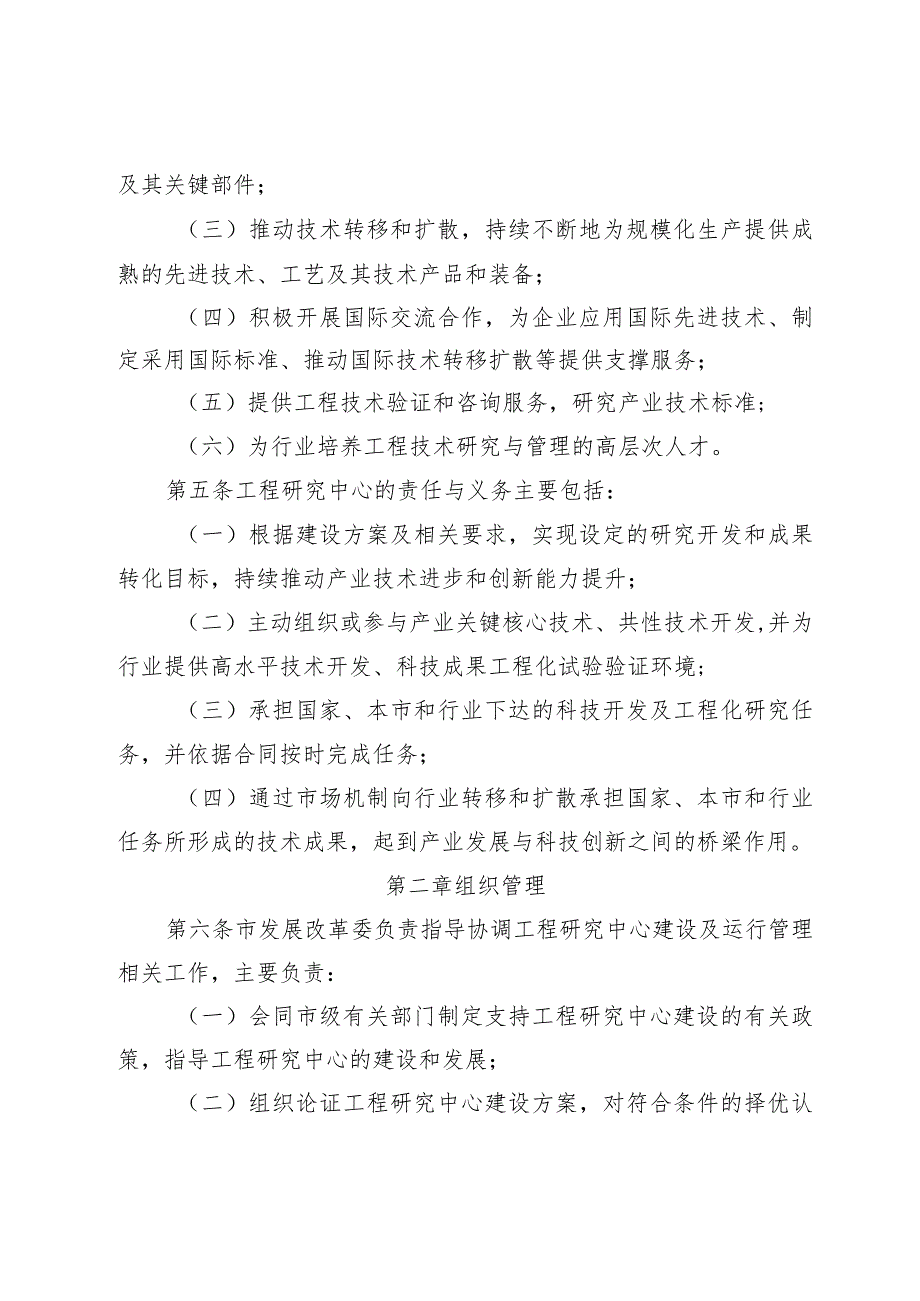 及其关键部件；
（三）推动技术转移和扩散，持续不断地为规模化生产提供成
熟的先进技术、工艺及其技术产品和装备；
（四）积极开展国际交流合作，为企业应用国际先进技术、制
定采用国际标准、推动国际技术转移扩散等提供支撑服务；
（五）提供工程技术验证和咨询服务，研究产业技术标准;
（六）为行业培养工程技术研究与管理的高层次人才。
第五条工程研究中心的责任与义务主要包括：
（一）根据建设方案及相关要求，实现设定的研究开发和成果
转化目标，持续推动产业技术进步和创新能力提升；
（二）主动组织或参与产业关键核心技术、共性技术开发,并为
行业提供高水平技术开发、科技成果工程化试验验证环境;
（三）承担国家、本市和行业下达的科技开发及工程化研究任
务，并依据合同按时完成任务；
（四）通过市场机制向行业转移和扩散承担国家、本市和行业
任务所形成的技术成果，起到产业发展与科技创新之间的桥梁作用。
第二章组织管理
第六条市发展改革委负责指导协调工程研究中心建设及运行管理
相关工作，主要负责：
（一）会同市级有关部门制定支持工程研究中心建设的有关政
策，指导工程研究中心的建设和发展；
（二）组织论证工程研究中心建设方案，对符合条件的择优认